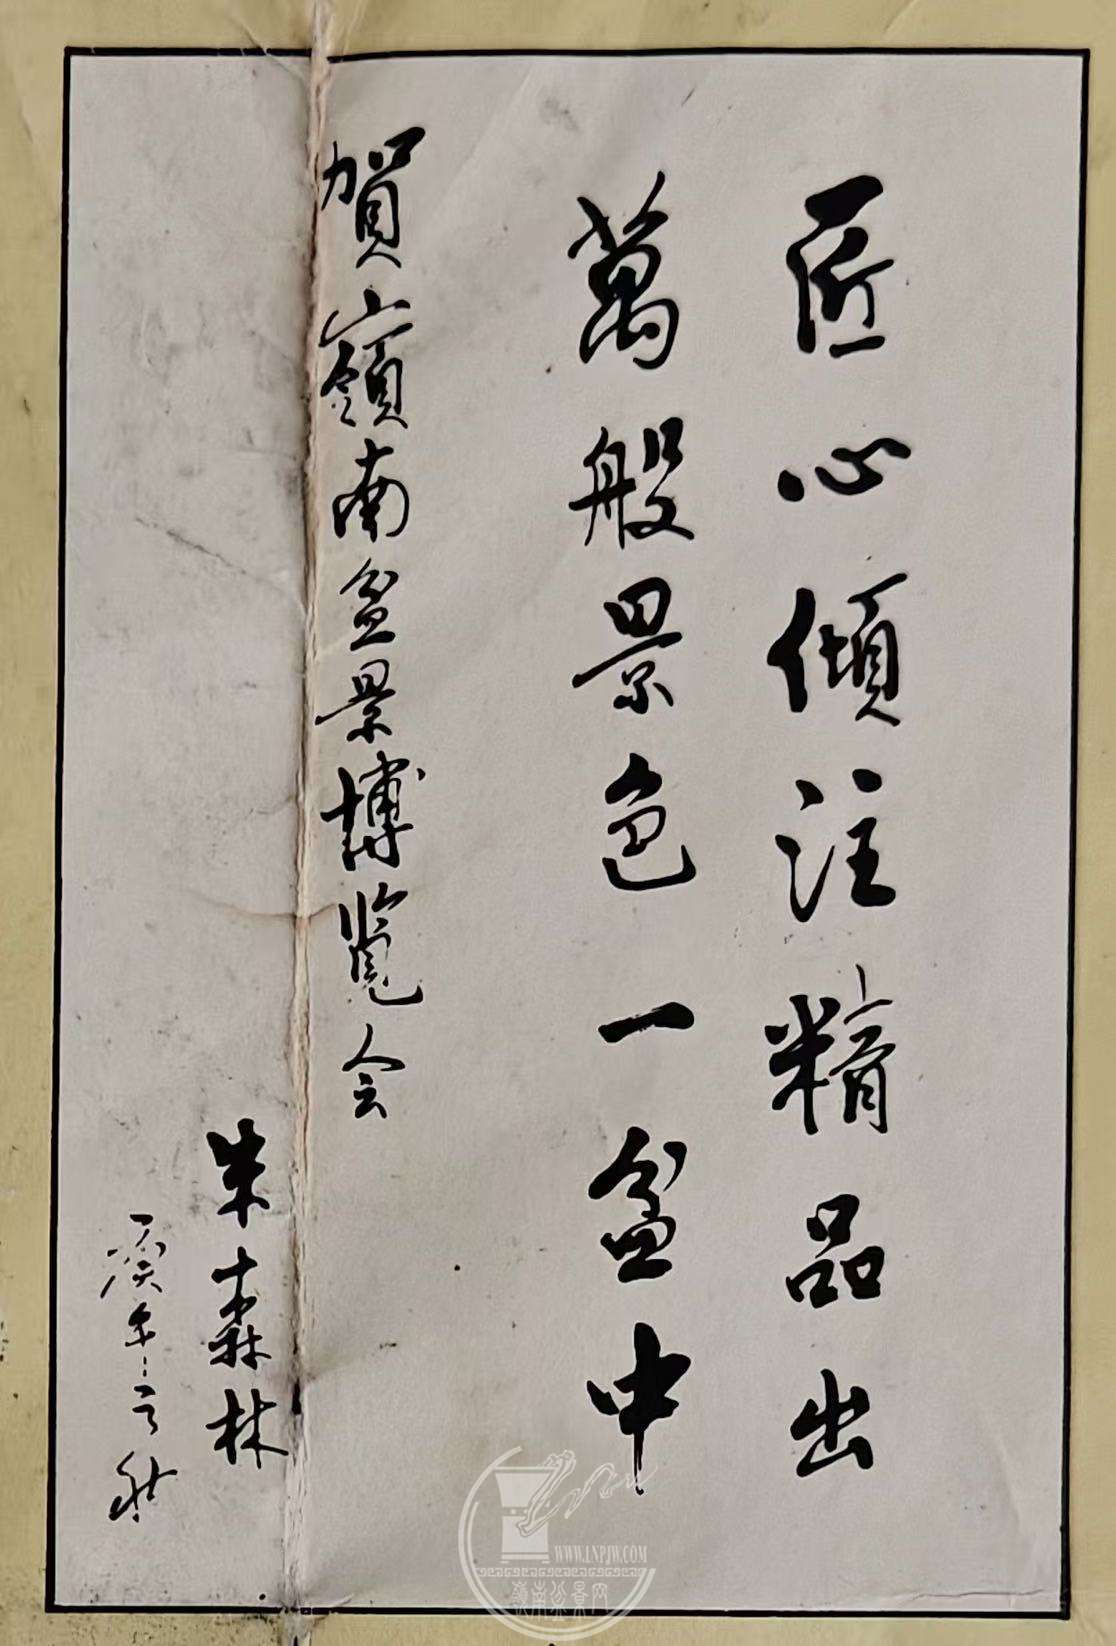 匠心傾注精品出
萬般景色一盆中
賀嶺南盆景博覽会
朱森林
年之秋
WWW.LNPJW.COM
嶺南盆景网